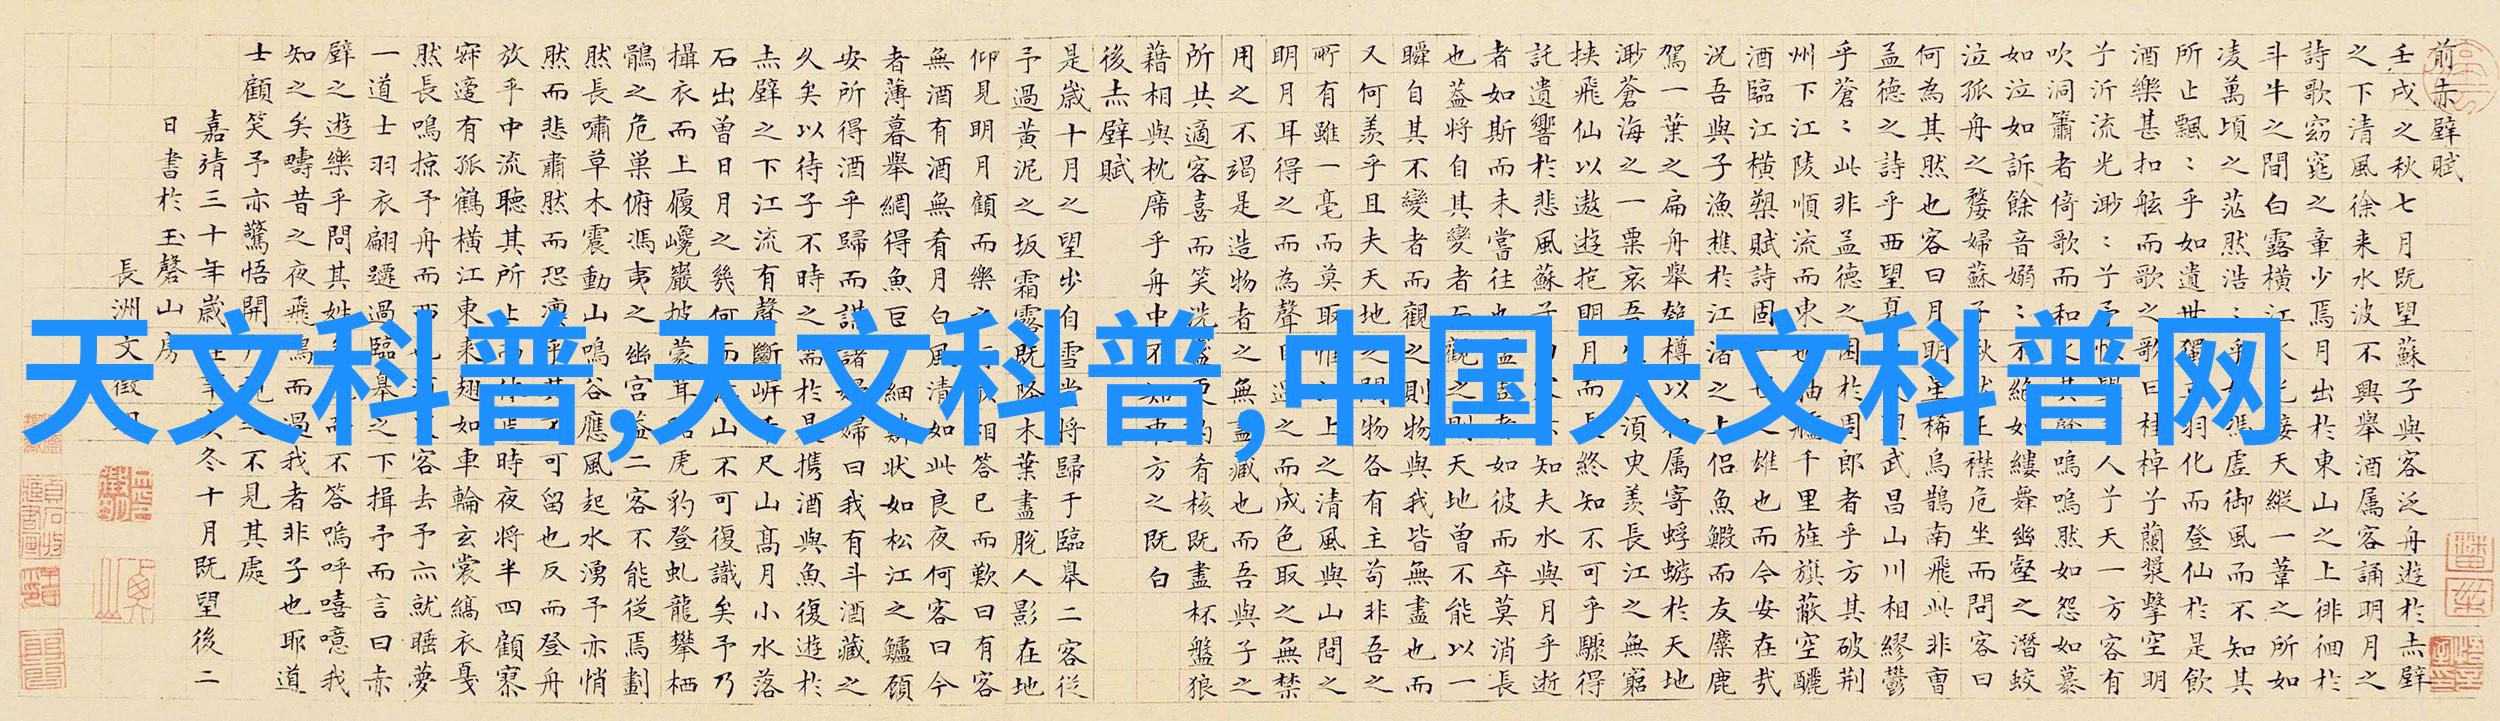 前赤壁賦
壬戌之秋七月既望蘇子與客泛舟遊於赤壁
之下清風徐来水波不興舉酒属客誦明月之
詩歌窈窕之章少焉月出於東山之上徘徊於
斗牛之間白露横江接天縱一葦之所如
凌萬頃之茫然浩馮虚御風而不知其
所止飄〻乎如遺世獨羽化而登仙於是飲
酒樂甚扣舷而歌之歌曰桂棹兮蘭槳擊空明
兮沂流光渺〻兮予人兮天一方客有
吹洞簫者倚歌而和其嗚嗚然如怨如慕
如泣如訴餘音嫋〻不絶如縷舞幽壑之潛蛟
泣孤舟之嫠婦蘇子愀然正襟危坐而問客曰
何為其然也客曰月明星稀烏鵲南飛此非曹
孟德之詩乎西望夏望武昌山川相繆鬱
乎蒼〻此非孟德之困於周郎者乎方其破荆
州下江陵順流而東也舳艫千里旌旗蔽空釃
酒臨江横槊賦詩固一雄也而今安在哉
況吾與子漁樵於江渚之上侣魚鰕而友麋鹿
駕一葉之扁舟舉匏樽以相属寄蜉蝣於天地
渺蒼海之一粟哀吾須臾羡長江之無窮
挟飛仙以遨遊抱明月而長終知不可乎驟得
託遺響於悲風蘇子知夫水與月乎逝
者如斯而未嘗往也盈者如彼而卒莫消長
也葢将自其變者而觀之則天地曾不能以一
瞬自其不變者而觀之則物與我皆無盡也而
又何羡乎且夫天地之間物各有主苟非吾之
所有雖一毫而莫取惟上之清風與山間之
明月耳得之而為聲目遇之而成色取之無禁
用之不竭是造物者之無盡藏也而吾與子之
所共適客喜而笑洗盞更酌肴核既盡杯盤狼
藉相與枕席乎舟中不知東方之既白
後赤壁賦
是歲十月之望步自雪堂将歸于臨皋二客從
予過黄泥之坂霜露既降木葉盡脫人影在地
仰見明月顧而樂之相答已而歎曰有客
無酒有酒無肴月白風清如此良夜何客曰今
者薄暮舉網得魚巨細狀如松江之鱸顧
安所得酒乎歸而謀諸婦婦曰我有斗酒藏之
久矣以待子不時之需於是携酒與魚復遊於
赤壁之下江流有聲斷岸千尺山髙月小水落
石出曾日月之幾何而山不可復識矣予乃
攝衣而上履巉巖披蒙茸虎豹登虬龍攀栖
鶻之危巢俯馮夷之幽宮葢二客不能從焉劃
然長嘯草木震動山鳴谷應風起水湧予亦悄
然而悲肅然而恐凛乎其可留也反而登舟
放乎中流聽其所止而休焉時夜将半四顧寥
寂適有孤鶴横江東来翅如車輪玄裳縞衣戛
然長鳴掠予舟而西也客去予亦就睡夢
一道士羽衣翩躚過臨皋之下揖予而言曰赤
壁之遊樂乎問其姓不答嗚呼嘻噫我
知之矣疇昔之夜飛鳴而過我者非子也耶道
士顧笑予亦驚悟開户不見其處
嘉靖三十年歲在冬十月既望後二
日書於玉磬山房
長洲文徵
天文科普,天文科普,中国天文科普网